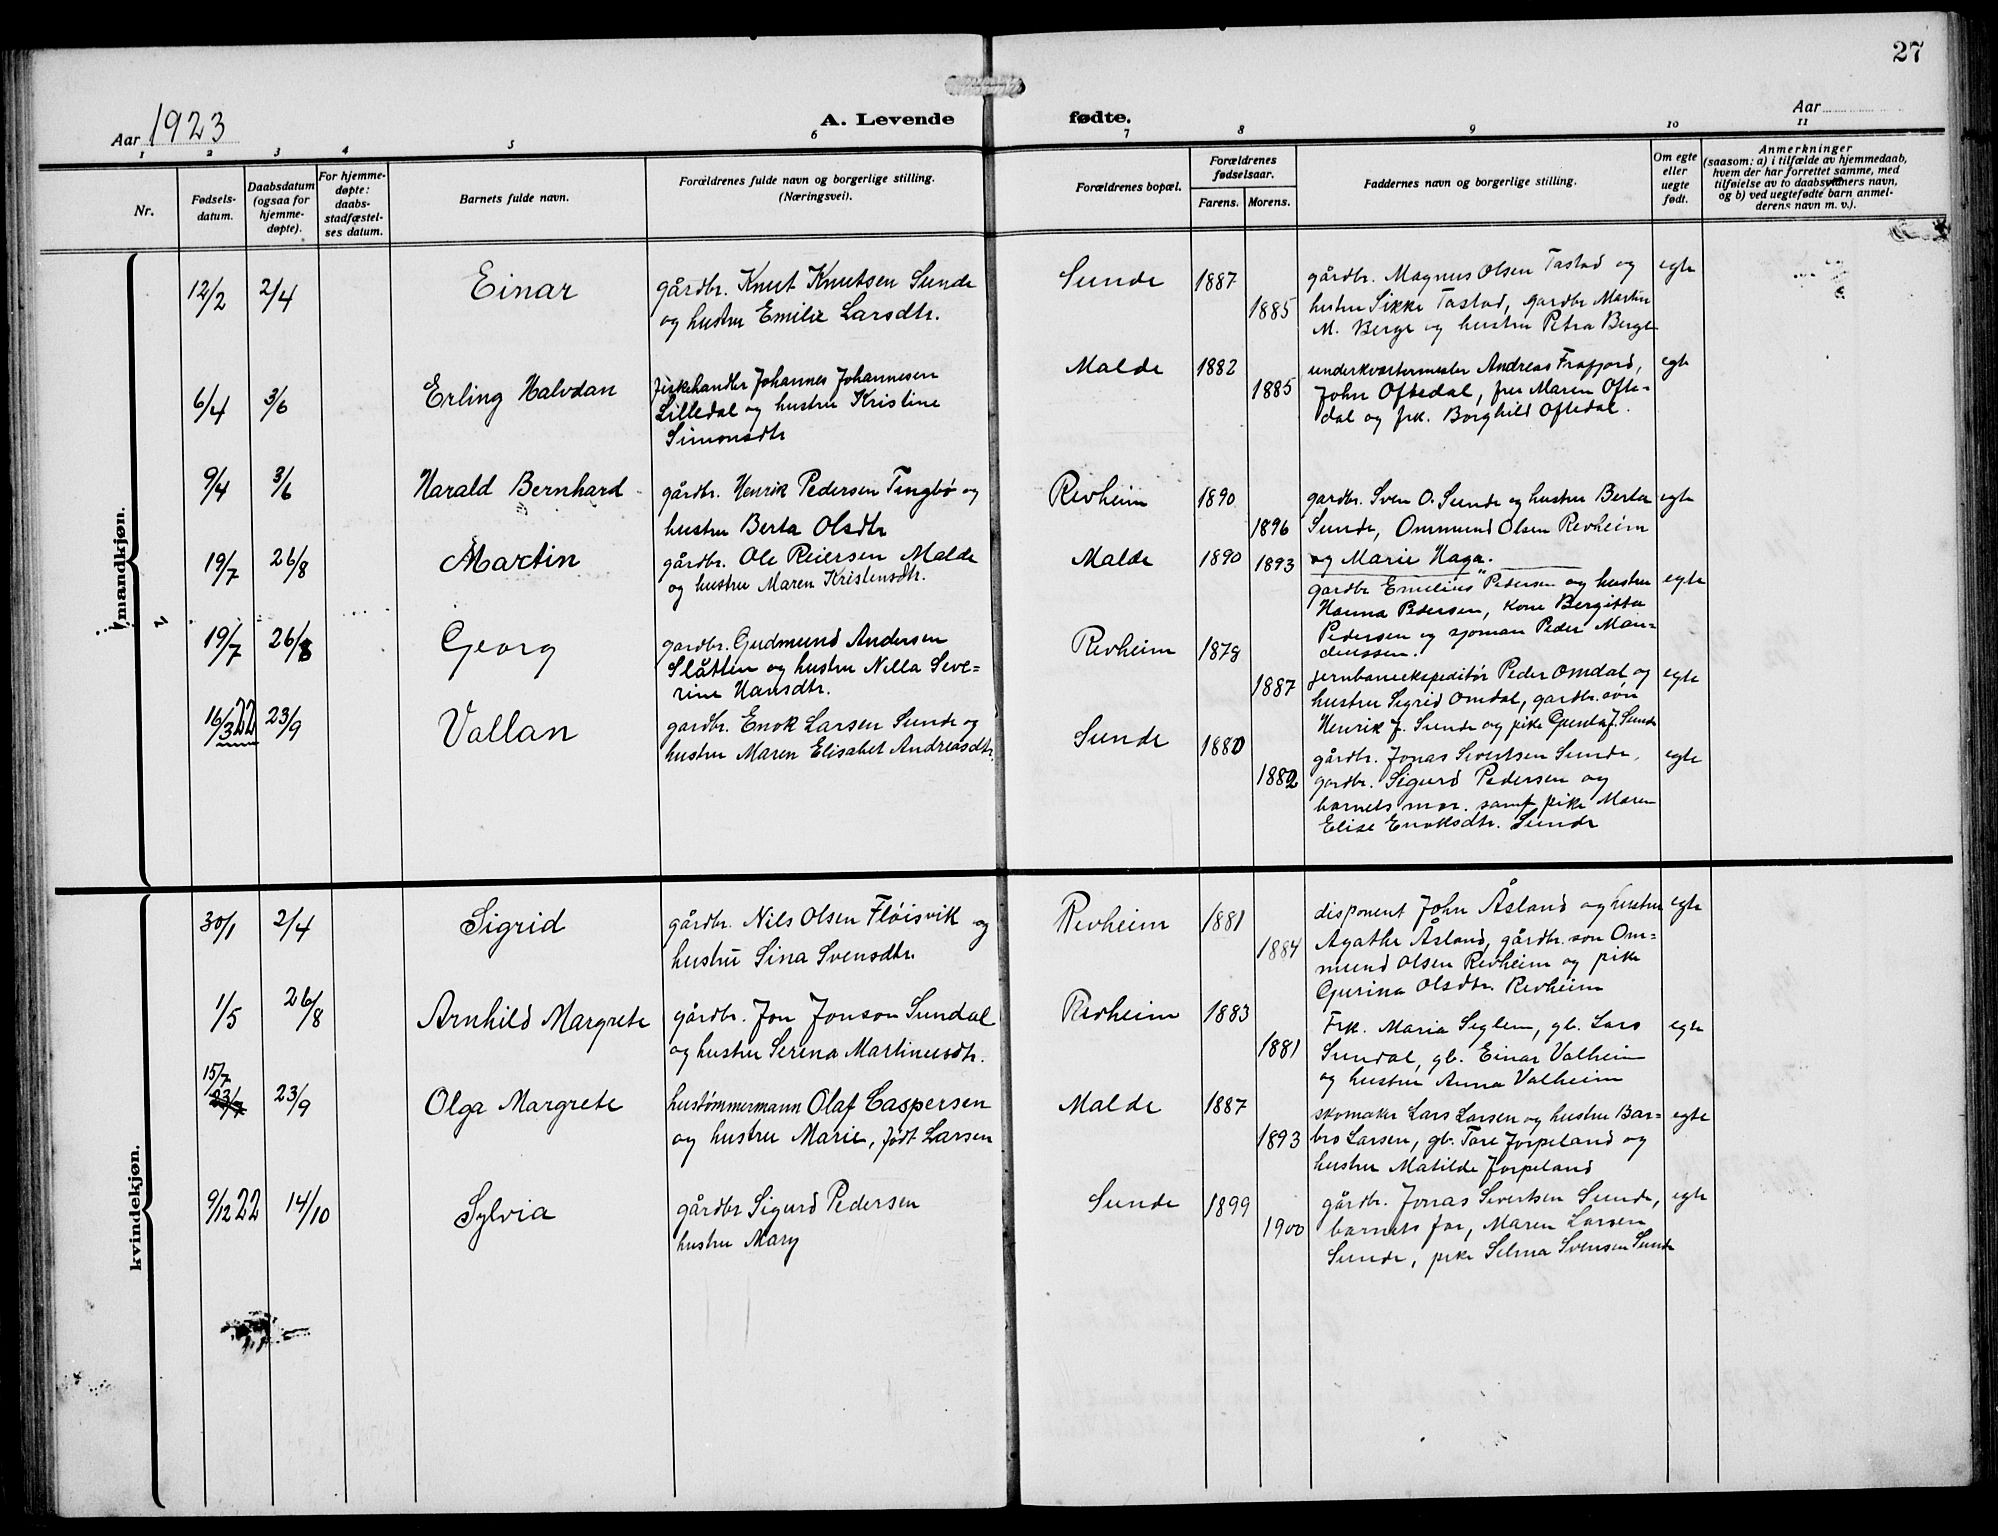 27
Aar 1923
A. Levende
fødte.
Aar
1
2
3
4
5
6
7
8
9
10
11
Nr.
Fødsels-
datum.
Daabsdatum
(ogsaa for
hjemme-
døpte).
For hjemme-
døpte:
daabs-
stadfæstel-
ses datum.
Barnets fulde navn.
Forældrenes fulde navn og borgerlige stilling.
(Næringsvei).
Forældrenes bopæl.
Forældrenes
fødselsaar.
Farens.
Morens.
Faddernes navn og borgerlige stilling.
Om egte
eller
uegte
født.
Anmerkninger
(saasom: a) i tilfælde av hjemmedaab,
hvem der har forrettet samme, med
tilføielse av to daabsvidners navn,
og b) ved uegtefødte barn anmel-
derens navn m. v.).
mandkjøn.
12/2
2/4
Einar
gårdbr. Knut Knutsen Sunde
og hustru Emilie Larsdtr.
Sunde
1887
1885
gårdbr. Magnus Olsen Tastad og
hustru Sikke Tastad, gardbr Martin
M. Berge og hustru Petra Berge
egte
6/4
3/6
Erling Halvdan
fiskehandler Johannes Johannesen
Lilledal og hustru Kristine
Simonsdtr
Malde
1882
1885
underkvartermester Andreas Frafjord,
John Oftedal, fru Maren Ofte-
dal og frk. Borghild Oftedal.
egte
9/4
3/6
Harald Bernhard
gårdbr. Henrik Pedersen Tingbø og
hustru Berta Olsdtr
Revheim
1890
1896
gardbr. Sven O. Sunde og hustru Berta
Sunde, Ommund Olsen Revheim
og Marie Haga.
egte
19/7
26/8
Martin
gårdbr. Ole Reiersen Malde
og hustru Maren Kristensdtr.
Malde
1890
1893
gardbr Emelius Pedersen og hustru
Hanna Pedersen, kone Bergitta
Pedersen og sjøman Peder Man-
diussen.
egte
19/7
26/8
Georg
gardbr. Gudmund Andersen
Slåtten og hustru Nilla Seve-
rine Hansdtr.
Revheim
1878
1887
jernbaneekspeditør Peder Omdal og
hustru Sigrid Omdal, gardbr. søn
Henrik J. Sunde og pike Gunda J. Sunde
egte
16/3 22
23/9
Vallan
gardbr. Enok Larsen Sunde og
hustru Maren Elisabet Andreasdtr.
Sunde
1880
1882
gårdbr. Jonas Sivertsen Sunde,
gardbr. Sigurd Pedersen og
barnets mor. samt pike Maren
Elise Enoksdtr. Sunde
egte
kvindekjøn.
30/1
2/4
Sigrid
gårdbr. Nils Olsen Fløisvik og
hustru Sina Svensdtr.
Revheim
1881
1884
disponent John Åsland og hustru
Agathe Åsland, gårdbr. søn Om-
mund Olsen Revheim og pike
Gurina Olsdtr. Revheim
egte
1/5
26/8
Arnhild Margrete
gårdbr. Jon Jonson Sundal
og hustru Serena Martinusdtr.
Revheim
1883
1881
Frk. Maria Seglem, gb. Lars
Sundal, gb. Einar Valheim
og hustru Anna Valheim
egte
15/7
23/7
23/9
Olga Margrete
hustømmermann Olaf Caspersen
og hustru Marie, født Larsen
Malde
1887
1893
skomaker Lars Larsen og hustru Bar-
bro Larsen, gb. Tore Jørpeland og
hustru Matilde Jørpeland
egte
9/12 22
14/10
Sylvia
gårdbr Sigurd Pedersen
hustru Mary
Sunde
1899
1900
gårdbr. Jonas Sivertsen Sunde,
barnets far, Maren Larsen
Sunde, pike Selma Svensen Sunde
egte